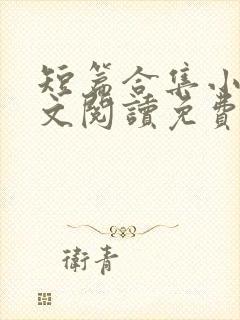 短篇合集小
文閱讀免費
衛青